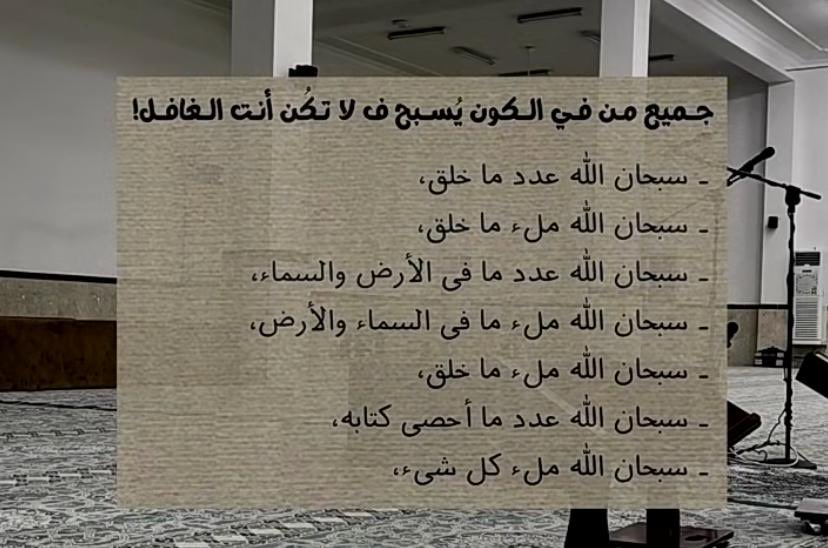 جميع من في الكون يُسبح ف لا تكُن أنت الغافل!
ـ سبحان الله عدد ما خلق،
ـ سبحان الله ملء ما خلق،
ـ سبحان الله عدد ما فى الأرض والسماء،
ـ سبحان الله ملء ما فى السماء والأرض،
ـ سبحان الله ملء ما خلق،
ـ سبحان الله عدد ما أحصى كتابه،
ـ سبحان الله ملء كل شىء،